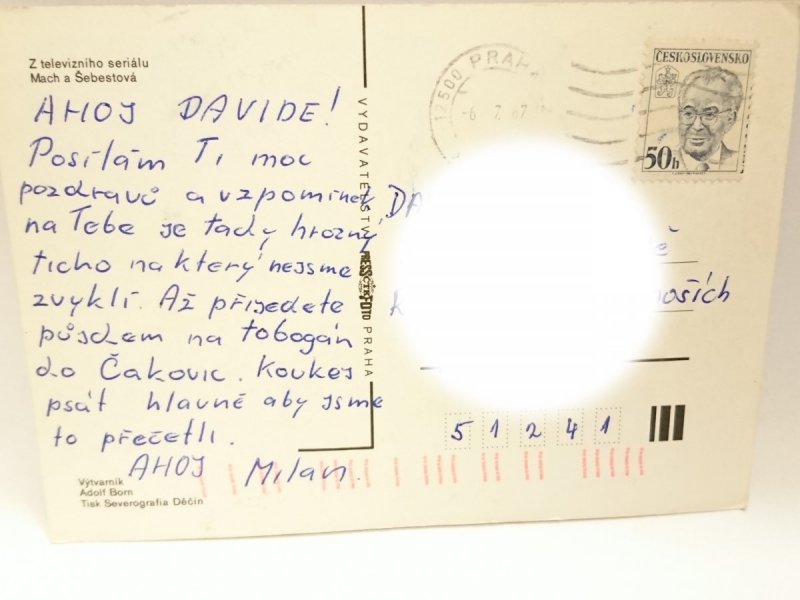 Z televizního seriálu
Mach a Šebestová
AHOJ DAVIDE!
Posílám Ti moc
pozdravů a vzpomínek
na Tebe je tady hrozný
ticho na který nejsme
zvyklí. Až přijedete
půjdem na tobogán
do Čakovic. Koukej
psát hlavně aby jsme
to přečetli.
AHOJ Milan.
Výtvarník
Adolf Born
Tisk Severografia Děčín
VYDAVATELSTVÍ PRESSFOTO PRAHA
12500 PRAHA
-6. 7. 87
ČESKOSLOVENSKO
50h
DA
ě
K oších
51241